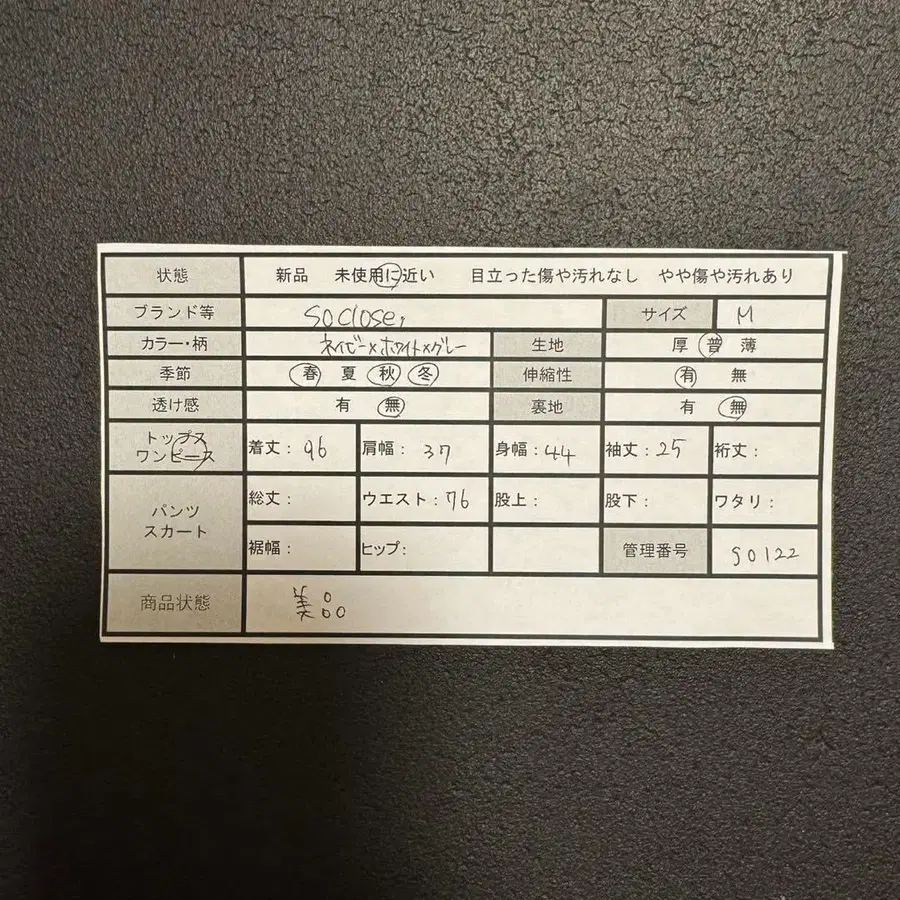 状態 新品 未使用に近い 目立った傷や汚れなし やや傷や汚れあり
ブランド等 soclose, サイズ M
カラー・柄 ネイビー×ホワイト×グレー 生地 厚 普 薄
季節 春 夏 秋 冬 伸縮性 有 無
透け感 有 無 裏地 有 無
トップス
ワンピース
着丈: 96 肩幅: 37 身幅: 44 袖丈: 25 裄丈:
パンツ
スカート
総丈: ウエスト: 76 股上: 股下: ワタリ:
裾幅: ヒップ: 管理番号 S0122
商品状態 美品